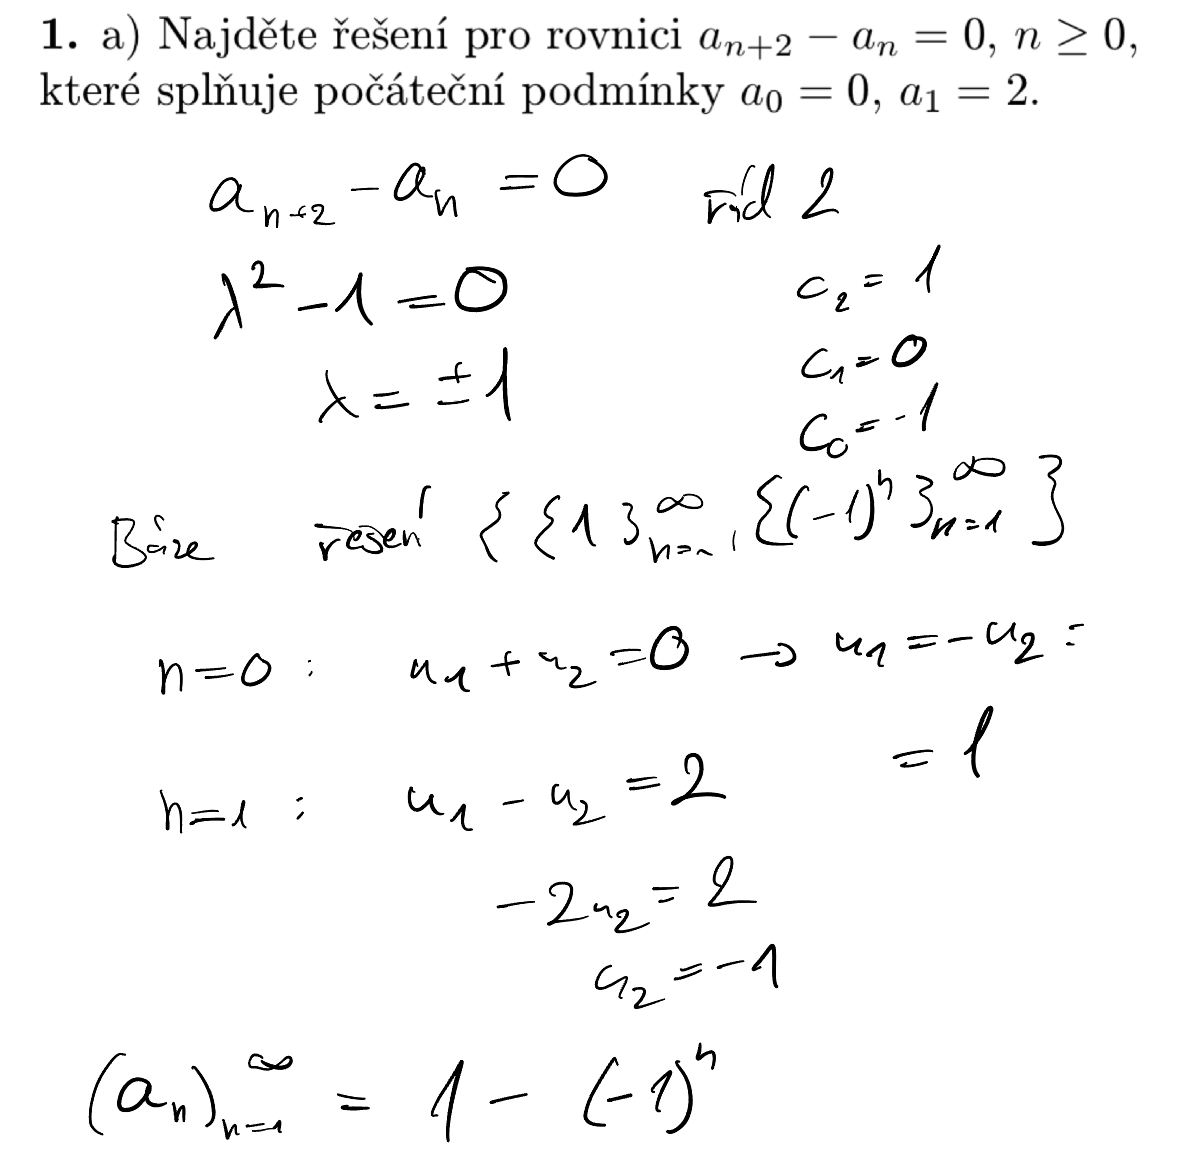 1. a) Najděte řešení pro rovnici aₙ₊₂ − aₙ = 0, n ≥ 0,
které splňuje počáteční podmínky a₀ = 0, a₁ = 2.
aₙ₊₂ - aₙ = 0 řád 2
λ² - 1 = 0 c₂ = 1
λ = ±1 c₁ = 0
c₀ = -1
Báze řešení { {1}ₙ₌ ^∞, {(-1)ⁿ}ₙ₌₁^∞ }
n=0 : u₁ + u₂ = 0 → u₁ = -u₂ =
= 1
n=1 : u₁ - u₂ = 2
-2u₂ = 2
u₂ = -1
(aₙ)ₙ₌₁^∞ = 1 - (-1)ⁿ